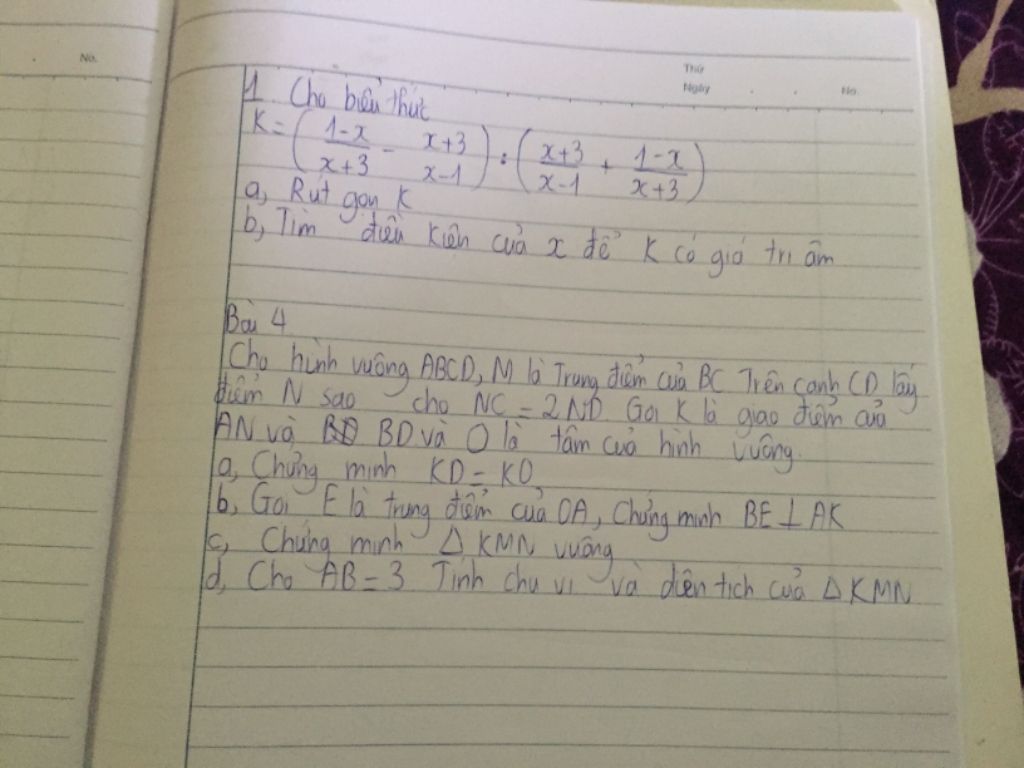 No.
Thứ
Ngày
No.
1 Cho biểu thức
K = ( (1-x)/(x+3) - (x+3)/(x-1) ) : ( (x+3)/(x-1) + (1-x)/(x+3) )
a, Rút gọn K
b, Tìm điều kiện của x để K có giá trị âm
Bài 4
Cho hình vuông ABCD, M là Trung điểm của BC Trên cạnh CD lấy
điểm N sao cho NC = 2ND Gọi K là giao điểm của
AN và BD và O là tâm của hình vuông.
a, Chứng minh KD = KO
b, Gọi E là trung điểm của OA, Chứng minh BE ⊥ AK
c, Chứng minh Δ KMN vuông
d, Cho AB = 3 Tính chu vi và diện tích của Δ KMN